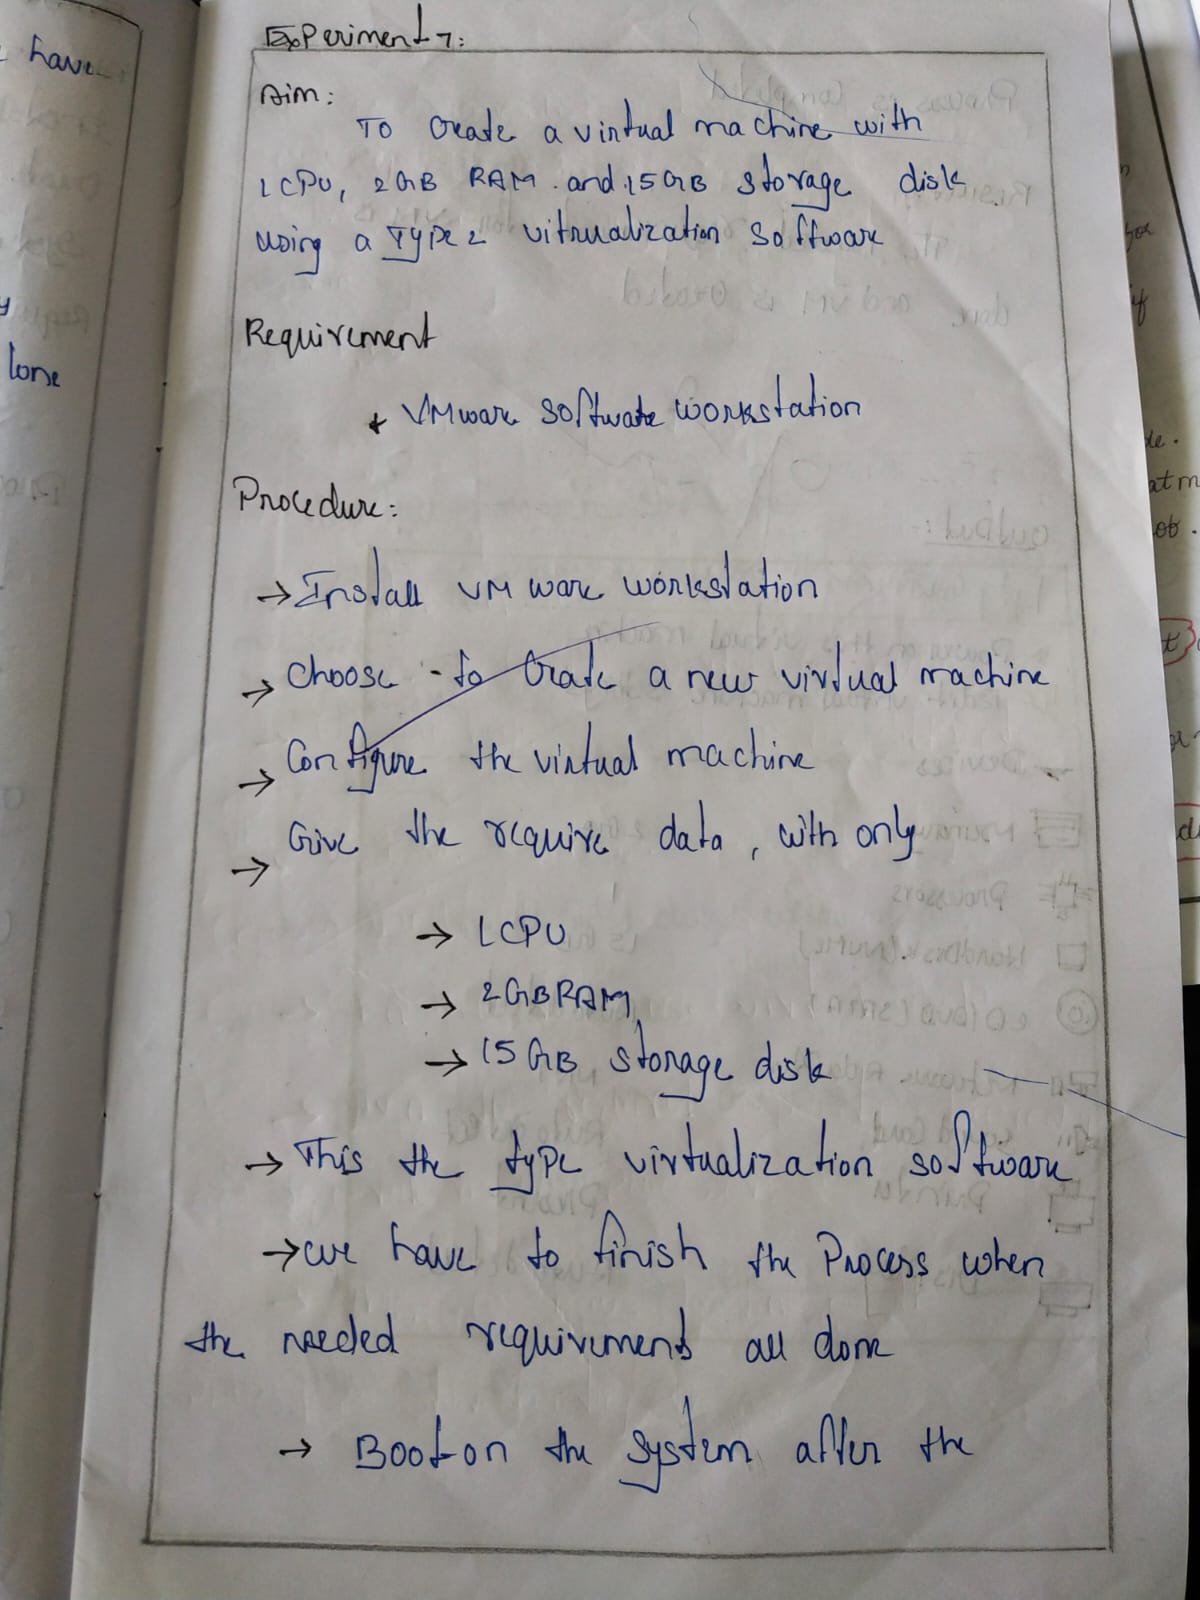 Experiment 7:
Aim:
To Create a virtual machine with
1 CPU, 2GB RAM and 15GB storage disk
using a Type 2 vitrualization software
Requirement
* VMware software workstation
Procedure:
→ Install VM ware workstation
→ Choose to Create a new virtual machine
→ Configure the virtual machine
→ Give the require data, with only
→ 1 CPU
→ 2GB RAM
→ 15 GB storage disk
→ This the type virtualization software
→ we have to finish the Process when
the needed requirements all done
→ Boot on the system after the
have
lone